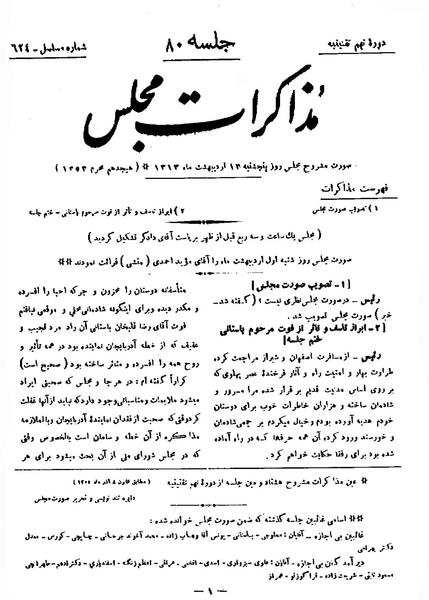 دورهٔ نهم تقنینیه
جلسه ۸۰
شماره مسلسل - ۶۲۴
مذاکرات مجلس
صورت مشروح مجلس روز پنجشنبه ۱۳ اردیبهشت ماه ۱۳۱۳ * (هیجدهم محرم ۱۳۵۳)
فهرست مذاکرات
۱) تصویب صورت مجلس
۲) ابراز تاسف و تأثر از فوت مرحوم باستانی - ختم جلسه
(مجلس یک ساعت و سه ربع قبل از ظهر بریاست آقای دادگر تشکیل گردید)
صورت مجلس روز شنبه اول اردیبهشت ماه را آقای مؤید احمدی (منشی) قرائت نمودند
[۱ - تصویب صورت مجلس]
رئیس - در صورت مجلس نظری نیست؟ (گفته شد -
خیر) صورت مجلس تصویب شد.
[۲ - ابراز تاسف و تاثر از فوت مرحوم باستانی
ختم جلسه]
رئیس - از مسافرت اصفهان و شیراز مراجعت کرده
طراوت بهار و امنیت راه و آثار فرخندهٔ عصر پهلوی که
بر روی اساس مدنیت قدیم بر قرار شده مرا مسرور و
شادمان ساخته و هزاران خاطرات خوب برای دوستان
خودم هدیه آورده بودم و خیال میکردم بر جمعی شادمان
و خورسند ورود کرده آن همه حرفها که در راه آماده
شده بود برای رفقا حکایت خواهم کرد.
متأسفانه دوستان را محزون و جرگه احبا را افسرده
و مکدر دیده و برای اینگونه شادمانی محلی و موقعی نیافتم
فوت آقای رضا قلیخان باستانی آن راد مرد نجیب و
عفیف که از خطه آذربایجان نماینده بود در همه تأثیر و
روح همه را افسرده و متأثر ساخته بود (صحیح است)
کراراً گفته‌ام: در هر جا و مجلس که صحبتی ایراد
میشود ملایمات و مناسباتی وجود دارد که نباید از آنها غفلت
کرد وقتی که صحبت از فقدان نمایندهٔ آذربایجان و بالملازمه
مذاکره از آن خطه و سامان است بالخصوص وقتی
که در مجلس شورای ملی از آن بحث میشود برای هر
* عین مذاکرات مشروح هشتاد و مین جلسه از دورهٔ نهم تقنینیه
(مطابق قانون ۸ آذر ماه ۱۳۰۴)
دایره تند نویسی و تحریر صورت مجلس
* * اسامی غائبین جلسه گذشته که ضمن صورت مجلس خوانده شده:
غائبین بی اجازه - آقایان: معاونی - یونس آقا وهاب زاده - محمد آخوند جرجانی - چایچی - کورس - معدل
دکتر بهرامی
دیر آمدگان بی اجازه - آقایان: علوی سبزواری - اسدی - افخمی - عراقی - اعظم زنگنه - اسفندیاری - دکتر ادهم - طاهرا چی
مسعود ثابتی - شریعت زاده - قراگوزلو
- ۱ -